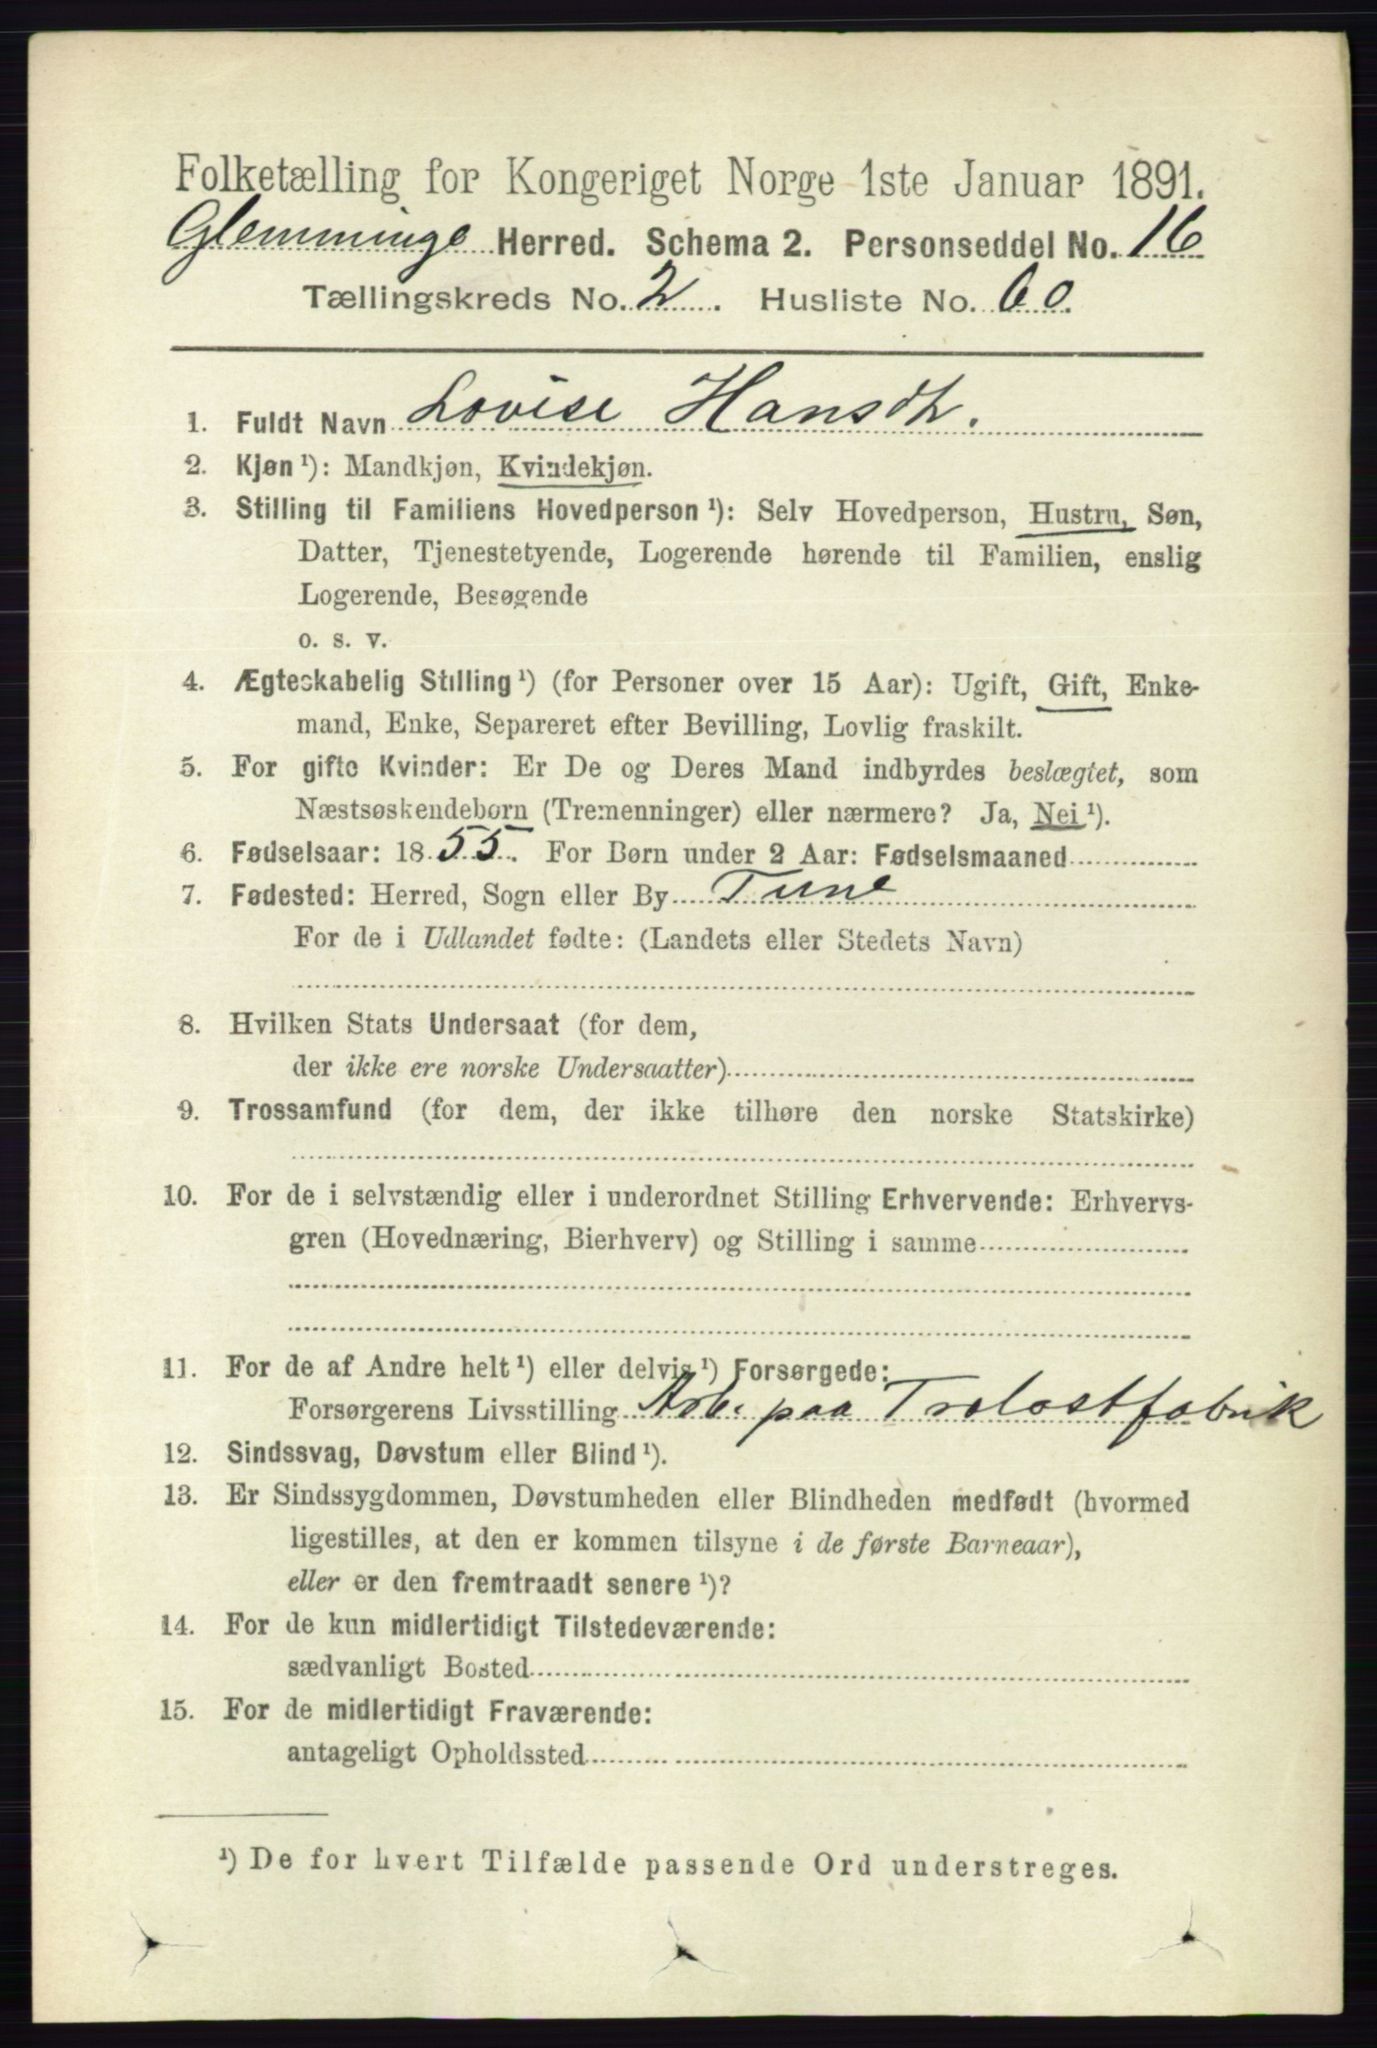 Folketælling for Kongeriget Norge 1ste Januar 1891.
Glemminge Herred. Schema 2. Personseddel No. 16
Tællingskreds No. 2. Husliste No. 60.
1. Fuldt Navn Lovise Hansdt.
2. Kjøn ¹): Mandkjøn, Kvindekjøn.
3. Stilling til Familiens Hovedperson ¹): Selv Hovedperson, Hustru, Søn,
Datter, Tjenestetyende, Logerende hørende til Familien, enslig
Logerende, Besøgende
o. s. v.
4. Ægteskabelig Stilling ¹) (for Personer over 15 Aar): Ugift, Gift, Enke-
mand, Enke, Separeret efter Bevilling, Lovlig fraskilt.
5. For gifte Kvinder: Er De og Deres Mand indbyrdes beslægtet, som
Næstsøskendebørn (Tremenninger) eller nærmere? Ja, Nei ¹).
6. Fødselsaar: 1855. For Børn under 2 Aar: Fødselsmaaned
7. Fødested: Herred, Sogn eller By Tune
For de i Udlandet fødte: (Landets eller Stedets Navn)
8. Hvilken Stats Undersaat (for dem,
der ikke ere norske Undersaatter)
9. Trossamfund (for dem, der ikke tilhøre den norske Statskirke)
10. For de i selvstændig eller i underordnet Stilling Erhvervende: Erhvervs-
gren (Hovednæring, Bierhverv) og Stilling i samme
11. For de af Andre helt ¹) eller delvis ¹) Forsørgede:
Forsørgerens Livsstilling Arb. paa Trælastfabrik
12. Sindssvag, Døvstum eller Blind ¹).
13. Er Sindssygdommen, Døvstumheden eller Blindheden medfødt (hvormed
ligestilles, at den er kommen tilsyne i de første Barneaar),
eller er den fremtraadt senere ¹)?
14. For de kun midlertidigt Tilstedeværende:
sædvanligt Bosted
15. For de midlertidigt Fraværende:
antageligt Opholdssted
¹) De for hvert Tilfælde passende Ord understreges.